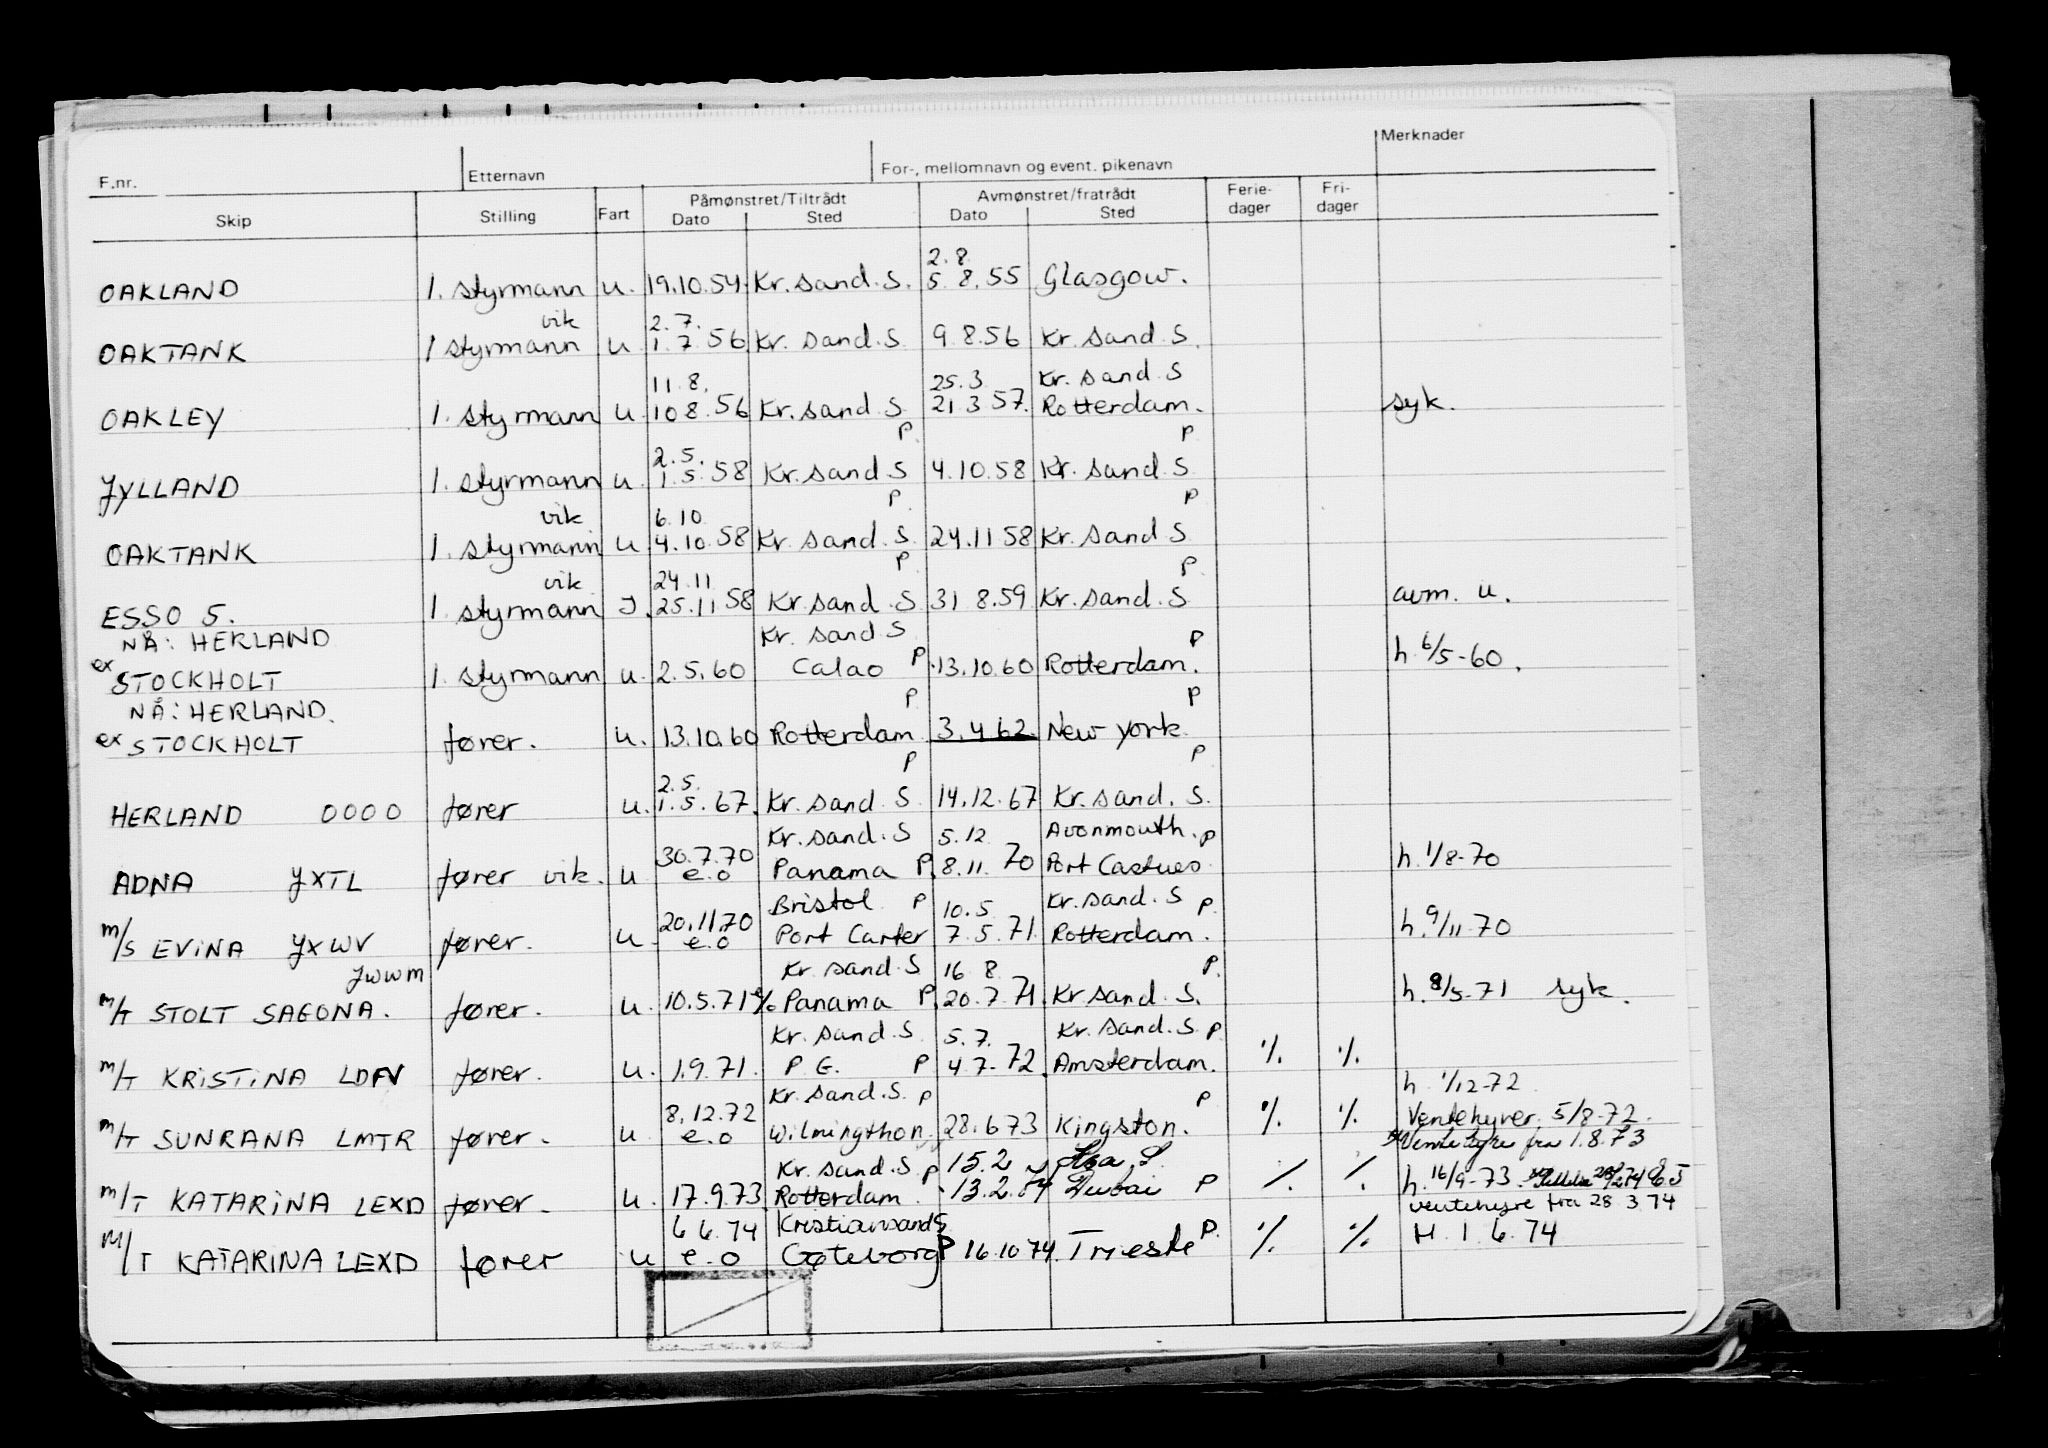 F.nr. Etternavn For-, mellomnavn og event. pikenavn Merknader
Skip Stilling Fart Påmønstret/Tiltrådt Avmønstret/fratrådt Ferie-dager Fri-dager
Dato Sted Dato Sted
2.8.
OAKLAND 1. styrmann u. 19.10.54. Kr.sand.S. 5.8.55 Glasgow.
vik 2.7.
OAKTANK 1 styrmann u 1.7 56 Kr. sand.S 9.8.56 Kr. sand S.
11.8. 25.3 Kr. sand S
OAKLEY 1. styrmann u. 10 8.56 Kr.sand S 21.3 57. Rotterdam. syk.
2.5. P. P
JYLLAND 1. styrmann u. 1.5.58 Kr.sand S 4.10.58 Kr. sand S
vik 6.10 P P
OAKTANK 1. styrmann u 4.10.58 Kr. sand.S 24.11 58 Kr. sand S
vik 24.11 P P.
ESSO 5. 1. styrmann J. 25.11 58 Kr.sand.S 31 8.59 Kr.sand.S avm. u.
NÅ: HERLAND Kr. sand S P
ex STOCKHOLT 1. styrmann u. 2.5.60 Calao P 13.10.60 Rotterdam. h. 6/5-60.
NÅ: HERLAND. P P
ex STOCKHOLT fører. u. 13.10.60 Rotterdam 3.4 62. New York.
2.5. P P
HERLAND 0000 fører u. 1.5.67. Kr.sand.S 14.12.67 Kr.sand.S.
30.7.70 Kr.sand.S 5.12 Avonmouth. P
ADNA JXTL fører vik. u e.o Panama P. 8.11.70 Port h. 1/8-70
20.11.70 Bristol P 10.5 Kr.sand.S P.
m/s EVINA JXWV fører. u e.o Port Carter 7.5.71. Rotterdam. h. 9/11-70
JWWM Kr.sand.S 16 8 P.
m/T STOLT SAGONA. fører. u. 10.5.71 % Panama P. 20.7.71. Kr sand.S. h. 8/5-71 syk.
Kr.sand.S 5.7. Kr.sand.S. P
m/T KRISTINA LDFV fører. u. 1.9.71. P G. P 4 7-72. Amsterdam. % %
8.12.72 Kr.sand.S. P P h. 1/12-72
m/T SUNRANA LMTR fører. u e.o Wilmingthon. 28.6 73 Kingston. % % Ventehyrer. 5/8-72.
Ventehyre fra 1.8.73
Kr.sand.S P 15.2
m/T KATARINA LEXD fører. u. 17.9.73. Rotterdam. 13.2.74 Dubai P % % h. 16/9-73.
ventehyre fra 28 3 74
6 6.74 Kristiansand S P.
M/T KATARINA LEXD fører u e.o Gøteborg P 16.10 74. Trieste % % H. 1.6.74